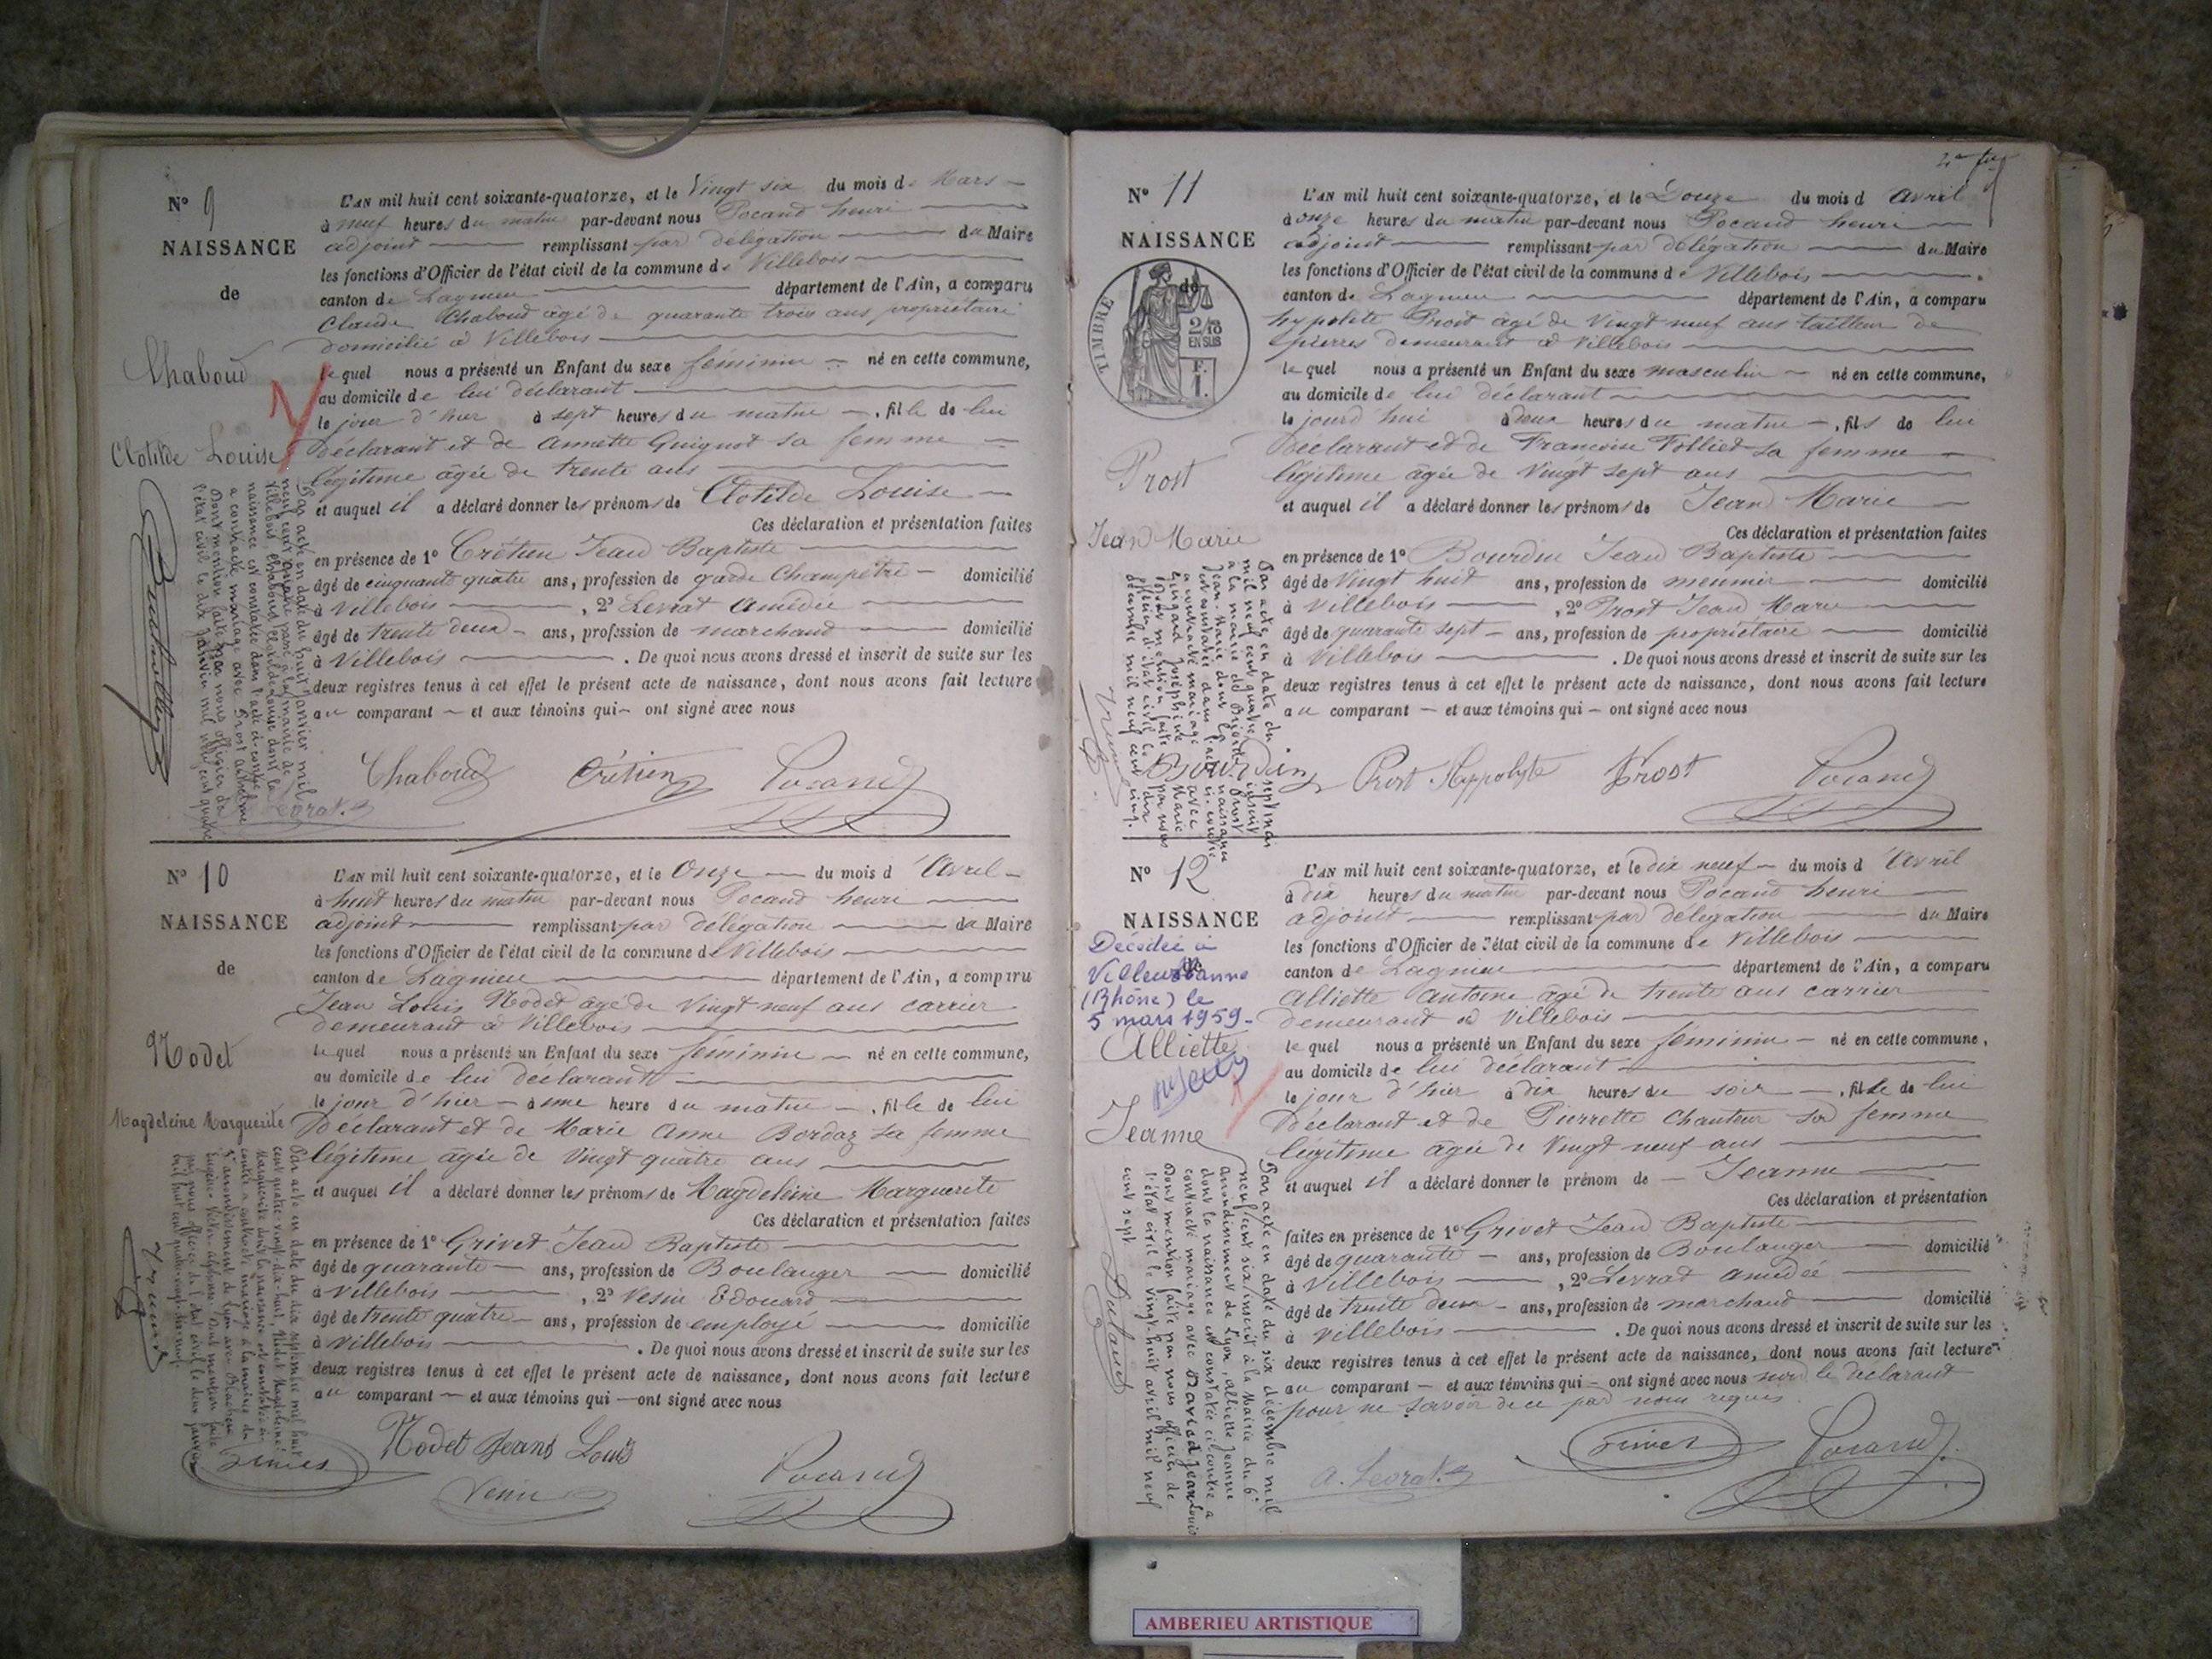 N° 9
NAISSANCE
de
Chaboud
Clotilde Louise
L'AN mil huit cent soixante-quatorze, et le Vingt six du mois de Mars
à neuf heures du matin par-devant nous Pocand henri
adjoint remplissant par délégation du Maire
les fonctions d'Officier de l'état civil de la commune de Villebois
canton de Lagnieu département de l'Ain, a comparu
Claude Chaboud âgé de quarante trois ans propriétaire
domicilié à Villebois
le quel nous a présenté un Enfant du sexe féminin né en cette commune,
au domicile de lui déclarant
le jour d'hier à sept heures du matin, fille de lui
déclarant et de Annette Guignot sa femme
légitime âgée de trente ans
et auquel il a déclaré donner les prénoms de Clotilde Louise
Ces déclaration et présentation faites
en présence de 1° Crétien Jean Baptiste
âgé de cinquante quatre ans, profession de garde Champêtre domicilié
à Villebois, 2° Levrat Amédée
âgé de trente deux ans, profession de marchand domicilié
à Villebois. De quoi nous avons dressé et inscrit de suite sur les
deux registres tenus à cet effet le présent acte de naissance, dont nous avons fait lecture
au comparant et aux témoins qui ont signé avec nous
Par acte en date du huit janvier mil
neuf cent quatre passé à la mairie de
Villebois, Chaboud Clotilde Louise dont la
naissance est constatée dans l'acte ci-contre
a contracté mariage avec Prost Anthelme
Dont mention faite par nous officier de
l'état civil le dix janvier mil neuf cent quatre
Chaboud Crétien Pocand
Levrat
N° 10
NAISSANCE
de
Nodet
Magdeleine Marguerite
L'AN mil huit cent soixante-quatorze, et le Onze du mois d'Avril
à huit heures du matin par-devant nous Pocand henri
adjoint remplissant par délégation du Maire
les fonctions d'Officier de l'état civil de la commune de Villebois
canton de Lagnieu département de l'Ain, a comparu
Jean Louis Nodet âgé de Vingt neuf ans carrier
demeurant à Villebois
le quel nous a présenté un Enfant du sexe féminin né en cette commune,
au domicile de lui déclarant
le jour d'hier à une heure du matin, fille de lui
déclarant et de Marie Anne Bordaz sa femme
légitime âgée de Vingt quatre ans
et auquel il a déclaré donner les prénoms de Magdeleine Marguerite
Ces déclaration et présentation faites
en présence de 1° Grivet Jean Baptiste
âgé de quarante ans, profession de Boulanger domicilié
à Villebois, 2° Vesin Edouard
âgé de trente quatre ans, profession de employé domicilié
à Villebois. De quoi nous avons dressé et inscrit de suite sur les
deux registres tenus à cet effet le présent acte de naissance, dont nous avons fait lecture
au comparant et aux témoins qui ont signé avec nous
Par acte en date du dix septembre mil huit
cent quatre-vingt-dix-huit, Nodet Magdeleine
Marguerite dont la naissance est constatée ci-
contre a contracté mariage à la mairie du
Grivet Nodet Jean Louis Pocand
Vesin
N° 11
NAISSANCE
de
TIMBRE
2/10
EN SUS
F.
1.
Prost
Jean Marie
L'AN mil huit cent soixante-quatorze, et le Douze du mois d'Avril
à onze heures du matin par-devant nous Pocand henri
adjoint remplissant par délégation du Maire
les fonctions d'Officier de l'état civil de la commune de Villebois.
canton de Lagnieu département de l'Ain, a comparu
hypolite Prost âgé de Vingt neuf ans tailleur de
pierres demeurant à Villebois
le quel nous a présenté un Enfant du sexe masculin né en cette commune,
au domicile de lui déclarant
le jourd'hui à deux heures du matin, fils de lui
déclarant et de Françoise Folliet sa femme
légitime âgée de Vingt sept ans
et auquel il a déclaré donner les prénoms de Jean Marie
Ces déclaration et présentation faites
en présence de 1° Bourdin Jean Baptiste
âgé de Vingt huit ans, profession de meunier domicilié
à Villebois, 2° Prost Jean Marie
âgé de quarante sept ans, profession de propriétaire domicilié
à Villebois. De quoi nous avons dressé et inscrit de suite sur les
deux registres tenus à cet effet le présent acte de naissance, dont nous avons fait lecture
au comparant et aux témoins qui ont signé avec nous
Bourdin Prost Hyppolyte Prost Pocand
N° 12
NAISSANCE
de
Décédée à
Villeurbanne
(Rhône) le
5 mars 1959.
Alliette
Jeanne
L'AN mil huit cent soixante-quatorze, et le dix neuf du mois d'Avril
à dix heures du matin par-devant nous Pocand henri
adjoint remplissant par délégation du Maire
les fonctions d'Officier de l'état civil de la commune de Villebois
canton de Lagnieu département de l'Ain, a comparu
Alliette Antoine âgé de trente ans carrier
demeurant à Villebois
le quel nous a présenté un Enfant du sexe féminin né en cette commune,
au domicile de lui déclarant
le jour d'hier à dix heures du soir, fille de lui
déclarant et de Pierrette Chanteur sa femme
légitime âgée de Vingt neuf ans
et auquel il a déclaré donner le prénom de Jeanne
Ces déclaration et présentation
faites en présence de 1° Grivet Jean Baptiste
âgé de quarante ans, profession de Boulanger domicilié
à Villebois, 2° Levrat Amédée
âgé de trente deux ans, profession de marchand domicilié
à Villebois. De quoi nous avons dressé et inscrit de suite sur les
deux registres tenus à cet effet le présent acte de naissance, dont nous avons fait lecture
au comparant et aux témoins qui ont signé avec nous non le déclarant
pour ne savoir de ce par nous requis
Par acte en date du six décembre mil
neuf cent six inscrit à la Mairie du 6e
arrondissement de Lyon, Alliette Jeanne
dont la naissance est constatée ci-contre a
contracté mariage avec Jean-Louis
Dont mention faite par nous officier de
l'état civil le vingt-huit avril mil neuf
cent sept
A. Levrat Grivet Pocand
AMBERIEU ARTISTIQUE